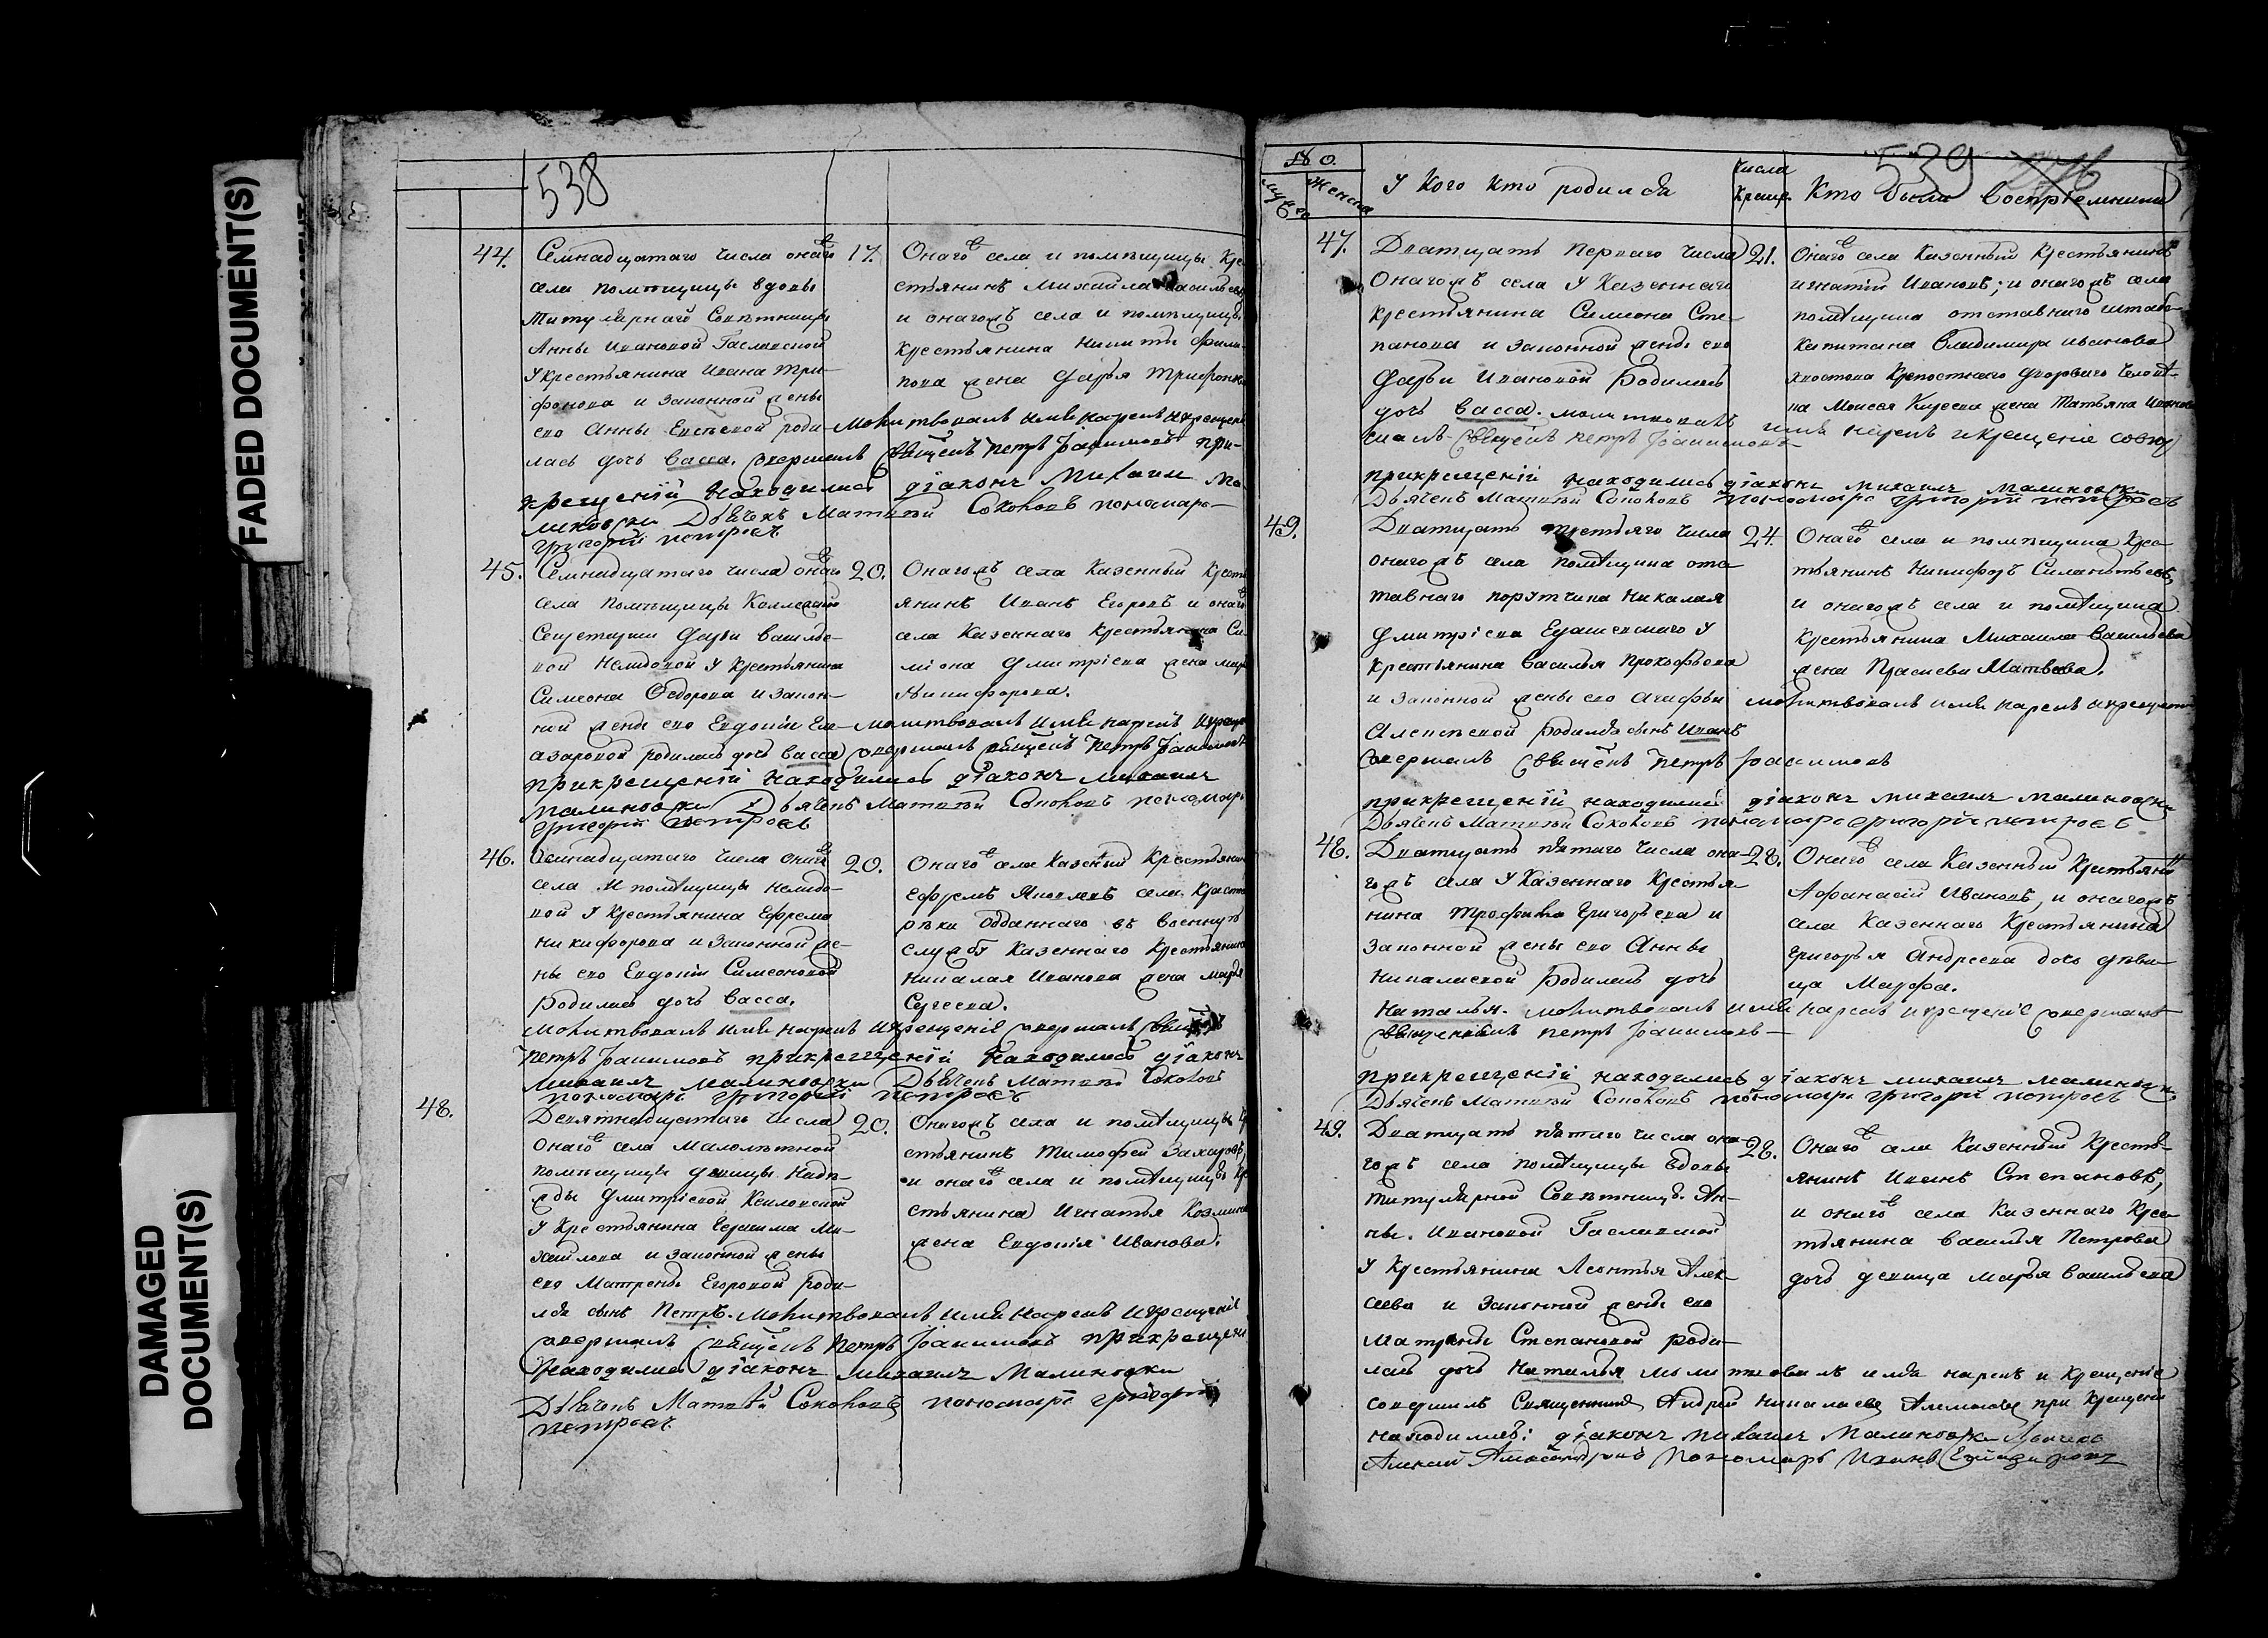 FADED DOCUMENT(S)
DAMAGED
DOCUMENT(S)
538
44. Семнадцатаго числа онаго 17.
села помѣщицы вдовы
титулярнаго Совѣтника
Анны Ивановой
У крестьянина Ивана Три-
фонова и законной жены
его Анны Евсѣевой роди-
лась дочь Васса.
Онагожъ села и помѣщицы кре
стьянинъ Михайла Васильевъ
и онагожъ села и помѣщицы
крестьянина Никиты Фили-
пова жена Дарья Трифонова
молитвовалъ имя нарекъ и крещеніе
совершалъ Священ Петръ Іоакимовъ при
крещеніи находились діаконъ Михаилъ Ма
линовски Дьячекъ Матвѣй Соколовъ пономарь
Григорій Петровъ
45. Семнадцатаго числа онаго 20.
села помѣщицы Коллежской
Секретарши Дарьи Василье-
вой Нелидовой у крестьянина
Симеона Ѳедорова и закон-
ной жены его Евдокіи Еле-
азаровой родилась дочь Васса
Онагожъ села Казенный крестъ
янинъ Иванъ Егоровъ и онаго
села Казеннаго крестьянина Си-
міона Дмитріева жена
Никифорова.
молитвовалъ имя нарекъ и креще
совершалъ священ Петръ Іоакимовъ
при крещеніи находились діаконъ Михаилъ
Малиновски Дьячекъ Матвѣй Соколовъ пономарь
Григорій Петровъ
46. Осмнадцатаго числа онаго 20.
села и помѣщицы Нелидо-
вой у крестьянина Ефрема
Никифорова и законной же-
ны его Евдокіи Симеоновой
родилась дочь Васса.
Онаго села Казенный крестьянинъ
Ефремъ Яковлевъ села
отданнаго въ военную
службу Казеннаго крестьянина
Николая Иванова жена Марья
Сергеева.
молитвовалъ имя нарекъ и крещеніе совершалъ священ
Петръ Іоакимовъ при крещеніи находились діаконъ
Михаилъ Малиновски Дьячекъ Матвѣй Соколовъ
пономарь Григорій Петровъ
48. Девятнадцатаго числа 20.
онаго села малолѣтной
помѣщицы дѣвицы Надѣ-
жды Дмитріевой
У крестьянина Герасима Ми-
хайлова и законной жены
его Матрены Егоровой роди-
лся сынъ Петръ.
Онагожъ села и помѣщицы кре
стьянинъ Тимофей Захаровъ,
и онаго села и помѣщицы кре
стьянина Игнатья Козмина
жена Евдокія Иванова.
молитвовалъ имя нарекъ и крещеніе
совершалъ священ Петръ Іоакимовъ при крещені
находились діаконъ Михаилъ Малиновски
Дьячекъ Матвѣй Соколовъ пономарь Григорій
Петровъ
539
муже Женска У Кого кто родился Числа Креще. Кто были Воспріемники
47. Дватцать перваго числа 21.
Онагожъ села у Казеннаго
крестьянина Симеона Сте-
панова и законной жены его
Дарьи Ивановой родилась
дочь Васса.
Онаго села Казенный крестьянинъ
Игнатій Ивановъ; и онагожъ села
помѣщика отставнаго штабс-
капитана Владимира Иванова
крепостнаго двороваго человѣ-
ка Моисея жена Татьяна Иванова
молитвовалъ имя нарекъ и крещеніе совер
шалъ Священъ Петръ Іоакимовъ
при крещеніи находились діаконъ Михаилъ Малиновски
Дьячекъ Матвѣй Соколовъ пономарь Григорій Петровъ
49. Дватцать третьяго числа 24.
онагожъ села помѣщика отс-
тавнаго порутчика Николая
Дмитріева у
крестьянина Василья Прокофьева
и законной жены его Агафьи
Алексѣевой родился сынъ Иванъ
Онаго села и помѣщика крес-
тьянинъ Никифоръ Силантьевъ,
и онагожъ села и помѣщика
крестьянина Михаила Васильева
жена Прасковья Матвѣева.
молитвовалъ имя нарекъ и крещеніе
совершалъ священъ Петръ Іоакимовъ
при крещеніи находились діаконъ Михаилъ Малиновски
Дьячекъ Матвѣй Соколовъ пономарь Григорій Петровъ
48. Дватцать пятаго числа она- 28.
гожъ села у Казеннаго крестья-
нина Трофима Григорьева и
законной жены его Анны
Николаевой родилась дочь
Наталья.
Онаго села Казенный крестьянинъ
Афанасій Ивановъ, и онагожъ
села Казеннаго крестьянина
Григорья Андреева дочь дѣви-
ца Марфа.
молитвовалъ имя нарекъ и крещеніе совершалъ
священникъ Петръ Іоакимовъ
при крещеніи находились діаконъ Михаилъ Малиновски
Дьячекъ Матвѣй Соколовъ пономарь Григорій Петровъ
49. Дватцать пятаго числа она- 28.
гожъ села помѣщицы вдовы
титулярной Совѣтницы Ан-
ны Ивановой
У крестьянина Леонтья Алек-
сеева и законной жены его
Матрены Степановой роди-
лась дочь Наталья
Онаго села Казенный кресть-
янинъ Иванъ Степановъ,
и онаго села Казеннаго крес-
тьянина Василья Петрова
дочь девица Марья Васильева
молитвовалъ имя нарекъ и крещеніе
совершилъ Священникъ Андрей Николаевъ при крещеніи
находились: діаконъ Михаилъ Малиновски Дьячекъ
Алексей пономарь Иванъ